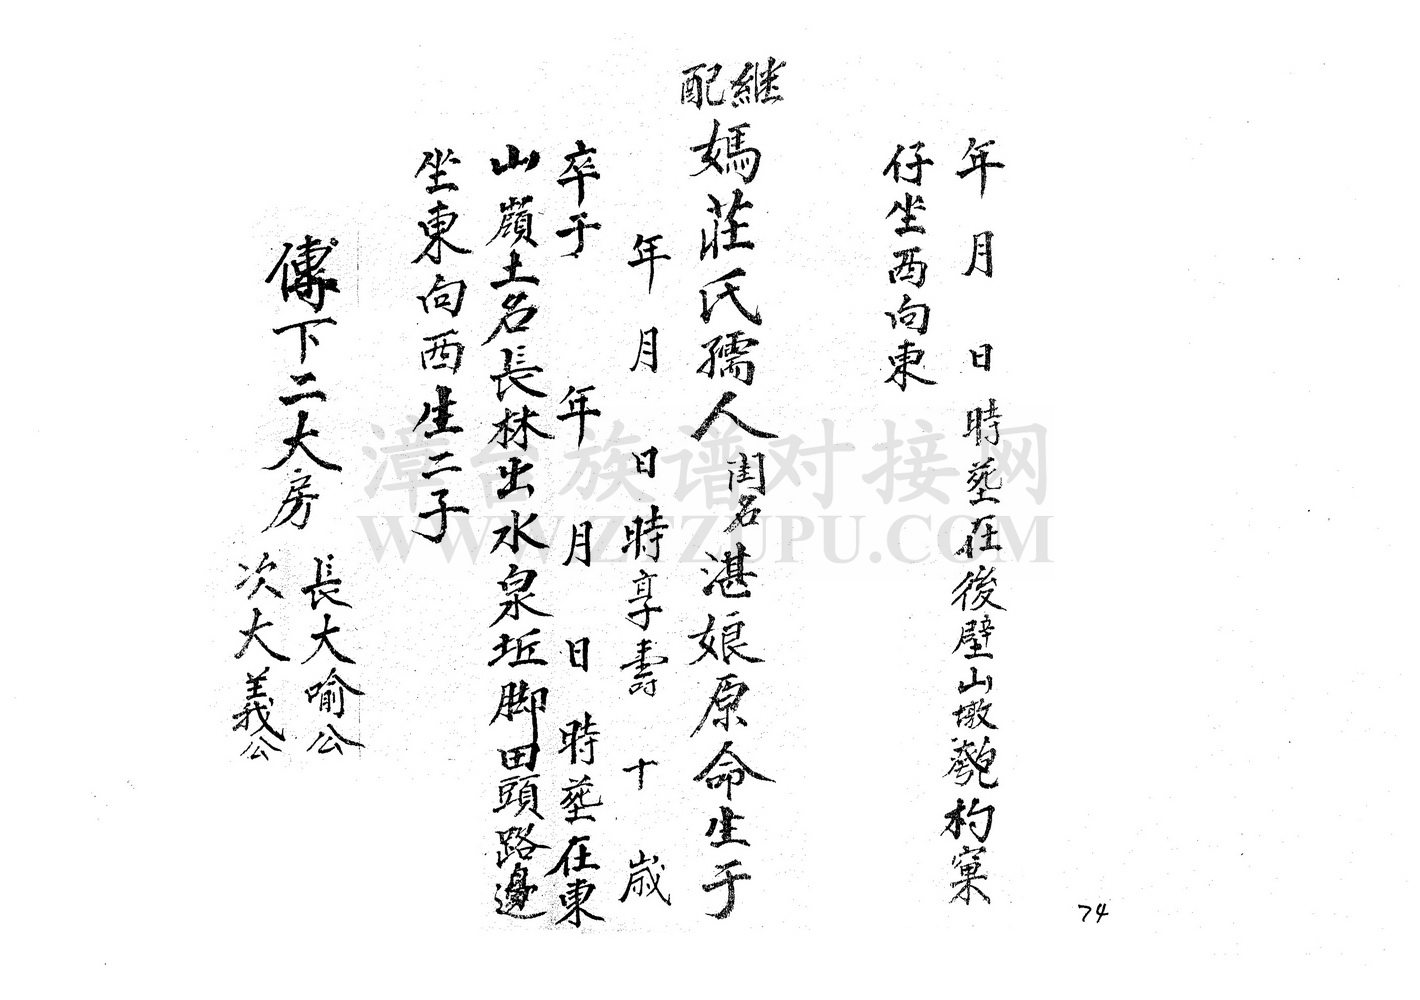 年 月 日 時塟在後壁山墩匏杓窠
仔坐西向東
継配媽莊氏孺人閨名湛娘原命生于
年 月 日時享壽 十 歲
卒于 年 月 日 時塟在東
山嶺土名長林出水泉坵脚田頭路邊
坐東向西生二子
傳下二大房
長大喻公
次大義公
74
漳台族谱对接网
WWW.ZTZUPU.COM